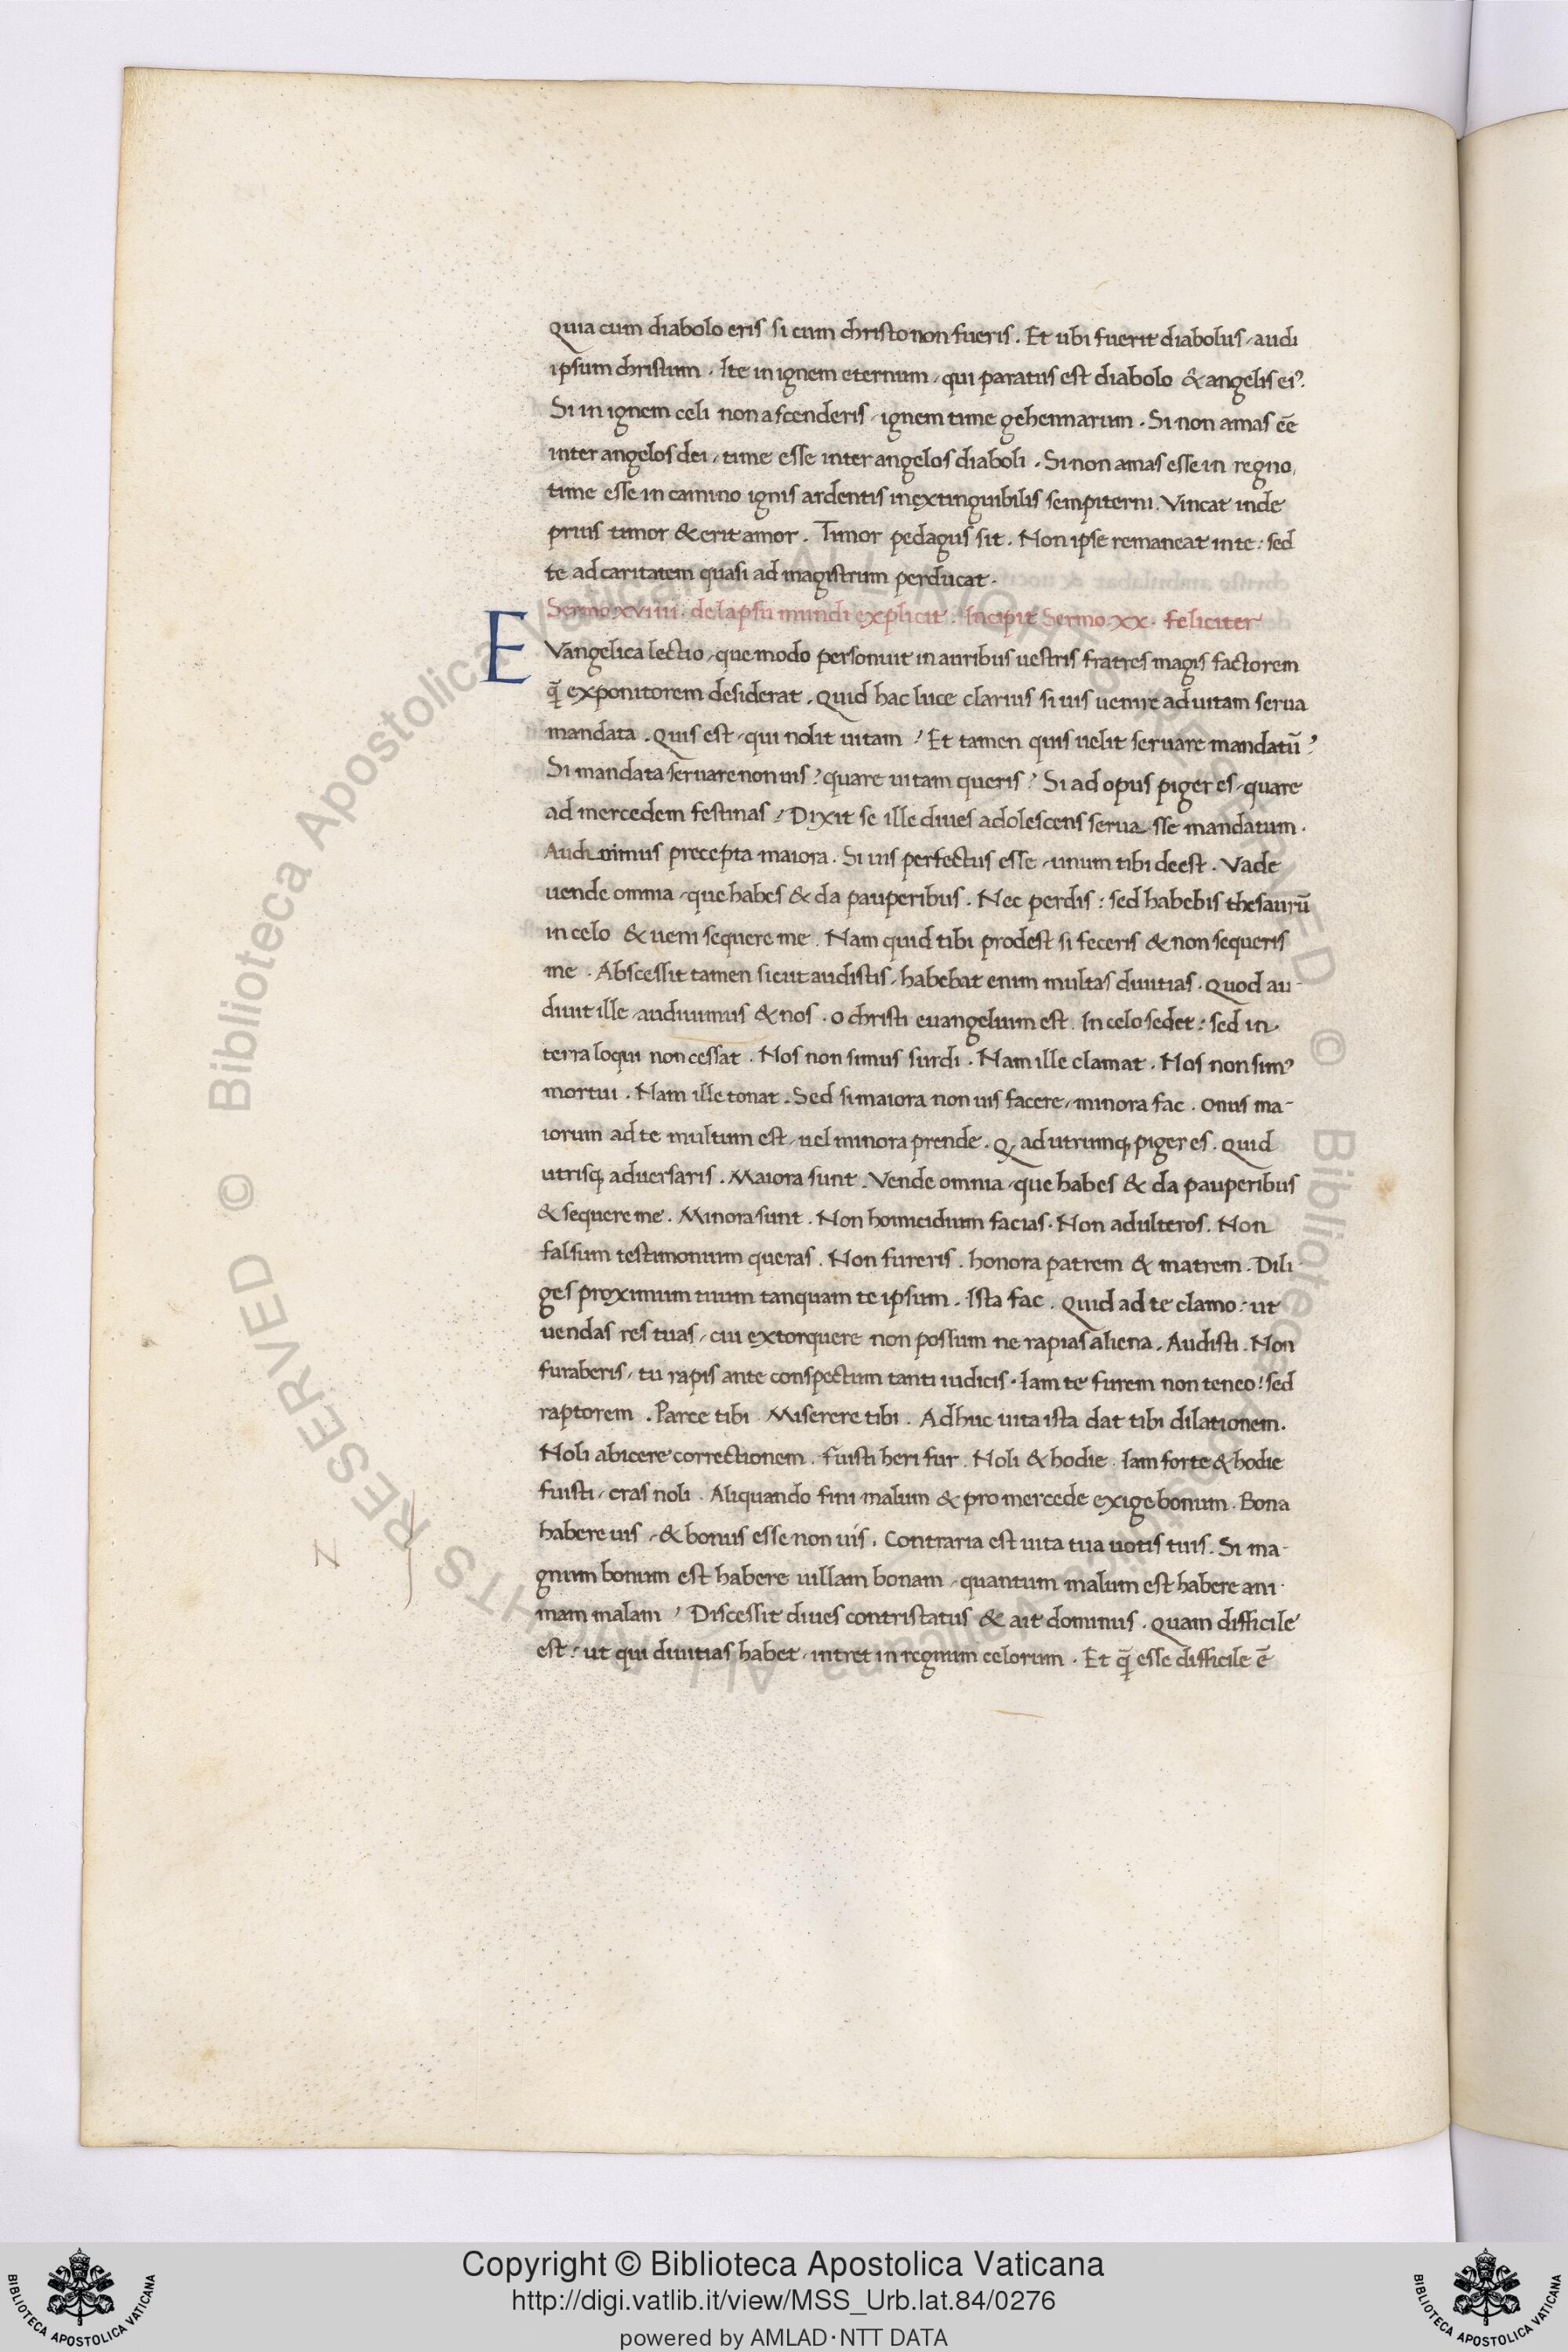 Quia cum diabolo eris si cum christo non fueris. Et ubi fuerit diabolus, audi
ipsum christum. Ite in ignem eternum, qui paratus est diabolo & angelis eiꝰ.
Si in ignem celi non ascenderis, ignem time gehennarum. Si non amas eē
inter angelos dei, time esse inter angelos diaboli. Si non amas esse in regno,
time esse in camino ignis ardentis inextinguibilis sempiterni. Vincat inde
prius timor & erit amor. Timor pedagus sit. Non ipse remaneat in te: sed
te ad caritatem quasi ad magistrum perducat.
Sermo.xviiii. de lapsu mundi explicit. Incipit Sermo.xx. feliciter
EVangelica lectio, que modo personuit in auribus uestris fratres magis factorem
q̄ expositorem desiderat. Quid hac luce clarius si uis uenire ad uitam serua
mandata. Quis est, qui nolit uitam? Et tamen quis uelit seruare mandatū?
Si mandata seruare non uis? quare uitam queris? Si ad opus piger es, quare
ad mercedem festinas? Dixit se ille diues adolescens seruasse mandatum.
Audiuimus precepta maiora. Si uis perfectus esse, unum tibi deest. Vade
uende omnia, que habes & da pauperibus. Nec perdis: sed habebis thesaurū
in celo & ueni sequere me. Nam quid tibi prodest si feceris & non sequeris
me. Abscessit tamen sicut audistis, habebat enim multas diuitias. Quod au-
diuit ille, audiuimus & nos. O christi euangelium est. In celo sedet: sed in
terra loqui non cessat. Nos non simus surdi. Nam ille clamat. Nos non simꝰ
mortui. Nam ille tonat. Sed si maiora non uis facere, minora fac. Onus ma-
iorum ad te multum est, uel minora prende. Qꝫ ad utrumqꝫ piger es. Quid
utrisqꝫ aduersaris. Maiora sunt. Vende omnia, que habes & da pauperibus
& sequere me. Minora sunt. Non homicidium facias. Non adulteros. Non
falsum testimonium queras. Non fureris. honora patrem & matrem. Dili-
ges proximum tuum tanquam te ipsum. Ista fac. Quid ad te clamo: ut
uendas res tuas, cui extorquere non possum ne rapias aliena. Audisti. Non
furaberis, tu rapis ante conspectum tanti iudicis. Iam te furem non teneo: sed
raptorem. Parce tibi. Miserere tibi. Adhuc uita ista dat tibi dilationem.
Noli abicere correctionem. fuisti heri fur. Noli & hodie. Iam forte & hodie
fuisti, cras noli. Aliquando fini malum & pro mercede exige bonum. Bona
habere uis, & bonus esse non uis. Contraria est uita tua uotis tuis. Si ma-
gnum bonum est habere uillam bonam, quantum malum est habere ani-
mam malam? Discessit diues contristatus & ait dominus. Quam difficile
est: ut qui diuitias habet, intret in regnum celorum. Et q̄ esse difficile ē
Copyright © Biblioteca Apostolica Vaticana
http://digi.vatlib.it/view/MSS_Urb.lat.84/0276
powered by AMLAD·NTT DATA
BIBLIOTECA APOSTOLICA VATICANA
BIBLIOTECA APOSTOLICA VATICANA
© Biblioteca Apostolica Vaticana ALL RIGHTS RESERVED © Biblioteca Apostolica Vaticana ALL RIGHTS RESERVED